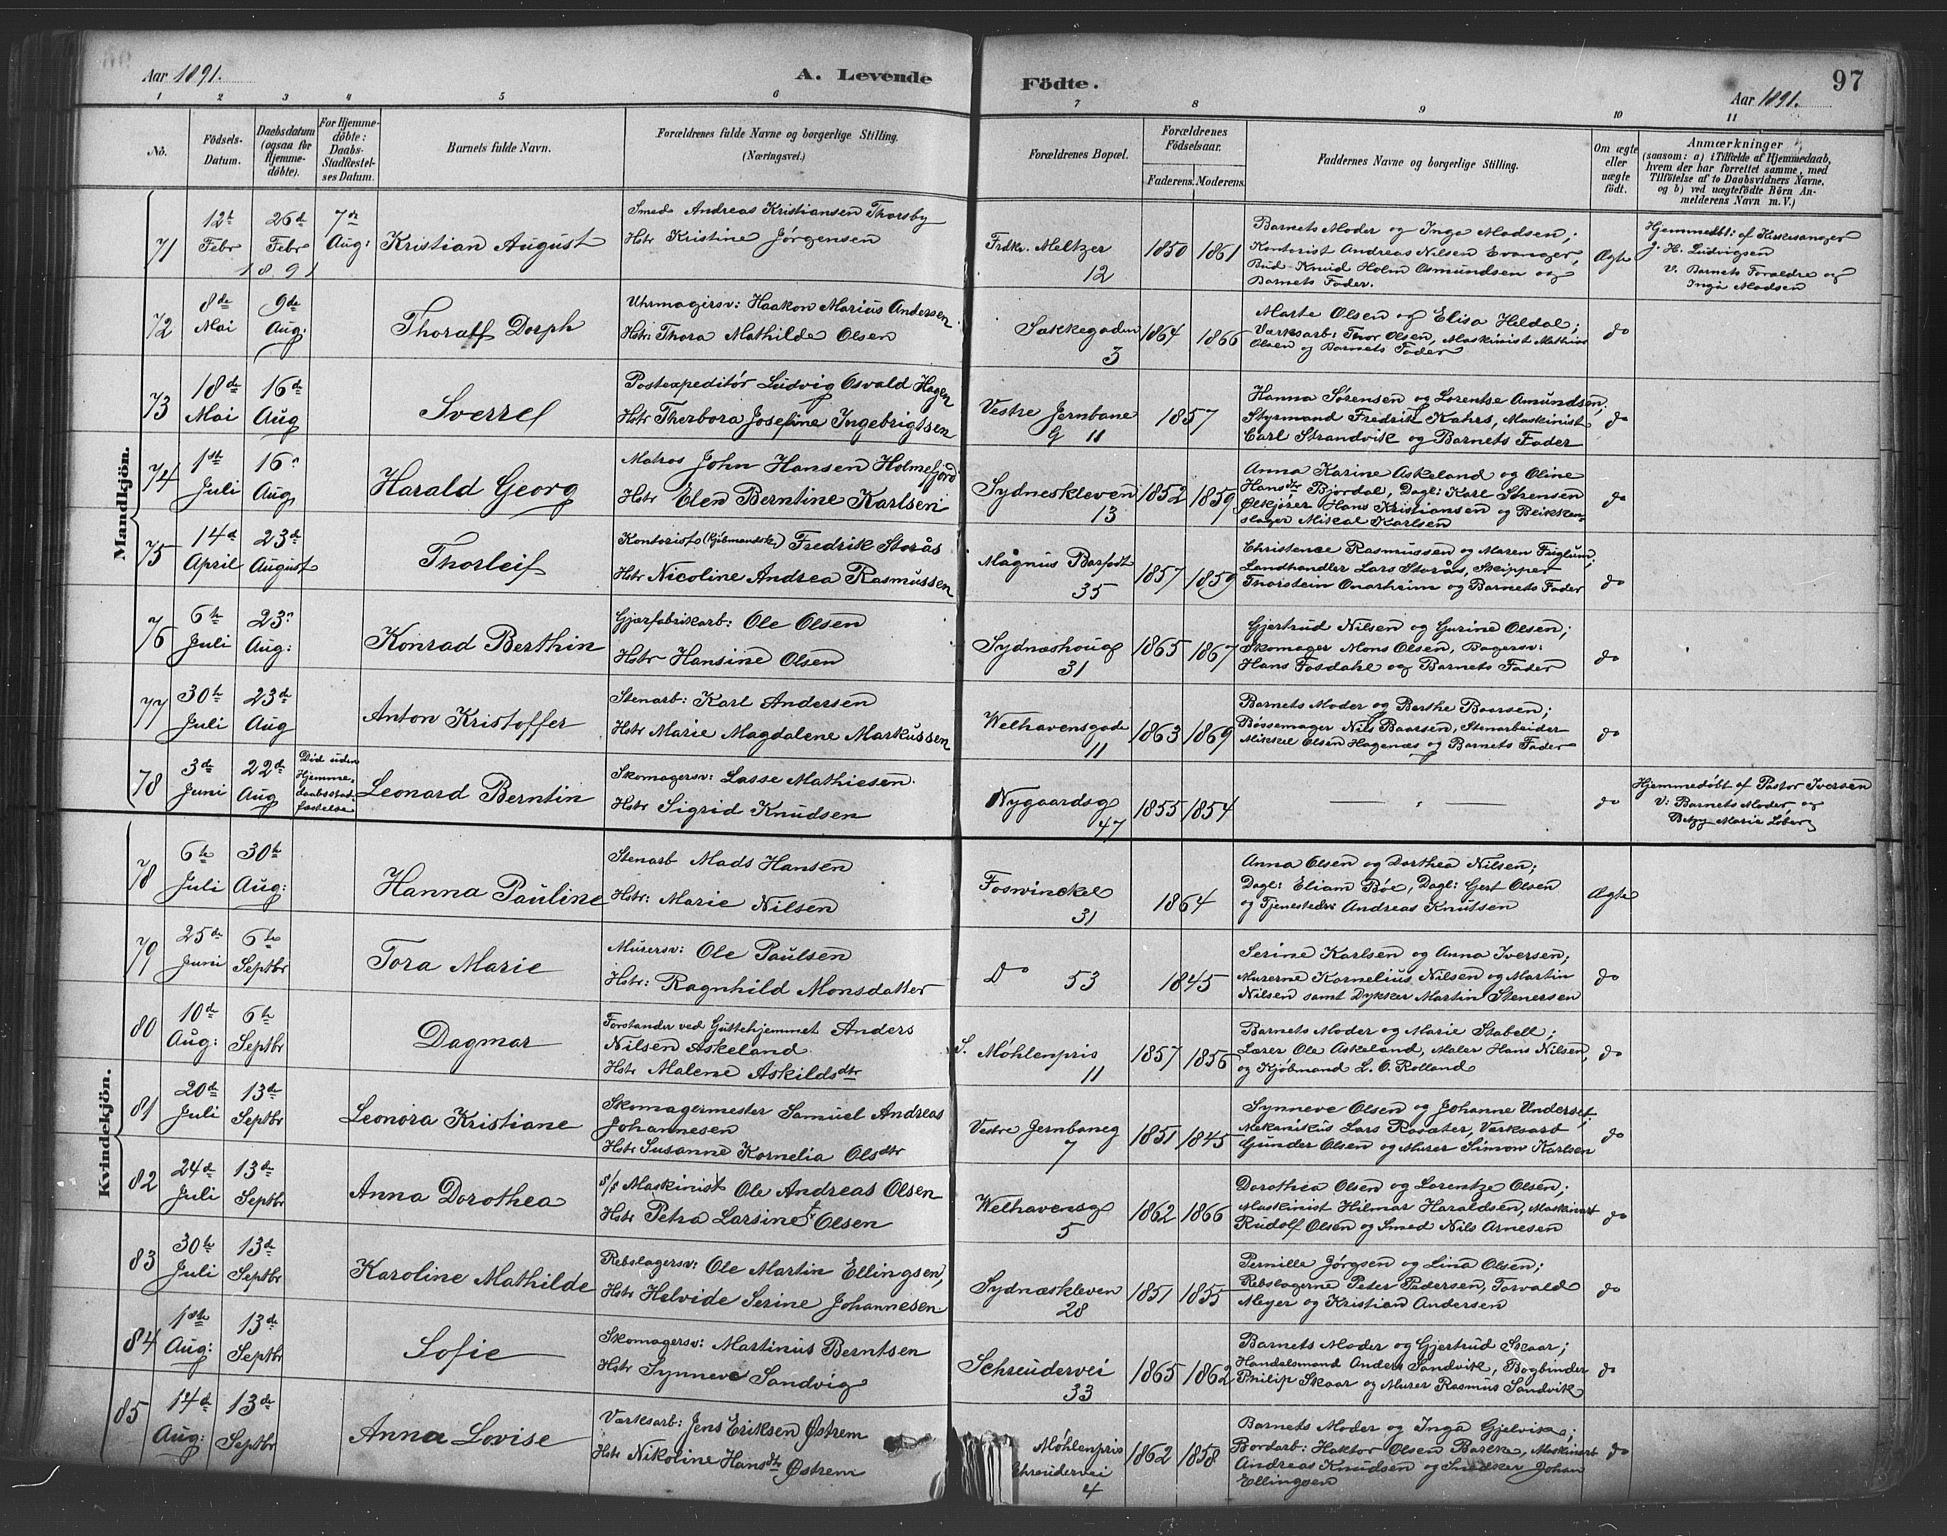 Aar 1891.
A. Levende
Födte.
97
Aar 1891.
1 2 3 4 5 6 7 8 9 10 11
No.
Födsels-Datum.
Daabsdatum (ogsaa for Hjemmedöbte).
For Hjemmedöbte: Daabs-Stadfæstelses Datum.
Barnets fulde Navn.
Forældrenes fulde Navne og borgerlige Stilling. (Næringsvei.)
Forældrenes Bopæl.
Forældrenes Födselsaar.
Faderens. Moderens.
Faddernes Navne og borgerlige Stilling.
Om ægte eller uægte födt.
Anmærkninger
(saasom: a) i Tilfælde af Hjemmedaab, hvem der har forrettet samme, med Tilföielse af to Daabsvidners Navne, og b) ved uægtefödte Börn Anmelderens Navn m. V.)
Mandkjön.
71 12te Febr 1891 26de Febr 7de Aug: Kristian August
Smed Andreas Kristiansen Thorsby
Hstr Kristine Jørgensen
Fredks. Meltzer 12 1850 1861
Barnets Moder og Inge Madsen;
Kontorist Andreas Nilsen Evanger,
Bud Knud Holm Osmundsen og
Barnets Fader.
Ægte
Hjemmedbt: af Kirkesanger
J. H. Ludvigsen
V. Barnets Forældre og
Inga Madsen
72 8de Mai 9de Aug: Thoralf Dorph
Uhrmagersv: Haakon Marius Andersen
Hstr: Thora Mathilde Olsen
Sækkegaden 3 1864 1866
Marte Olsen og Elisa Heldal;
Værksarb: Thor Olsen, Maskinist Mathias
Olsen og Barnets Fader
do
73 18de Mai 16de Aug Sverre
Postexpeditör Ludvig Osvald Hagen
Hstr Thorbora Josefine Ingebrigtsen
Vestre Jernbane G 11 1857
Hanna Sørensen og Lorentse Amundsen,
Styrmand Fredrik Kahrs, Maskinist
Carl Strandvik og Barnets Fader
do
74 1ste Juli 16de Aug Harald Georg
Matros John Hansen Holmefjord
Hstr Elen Berntine Karlsen
Sydneskleven 13 1852 1859
Anna Karine Askeland og Oline
Hansdtr Bjordal, Dagl: Karl Sørensen
Ølkjører Hans Kristiansen og Blikken-
slager Mikal Karlsen
do
75 14de April 23de August Thorleif
Kontorist (Kjøbmandsk.) Fredrik Storås
Hstr Nicoline Andrea Rasmussen
Magnus Barfodt 35 1857 1859
Christence Rasmussen og Maren Fuglum;
Landhandler Lars Storås, Skipper
Thorstein Onarheim og Barnets Fader
do
76 6te Juli 23de Aug: Konrad Berthin
Gjærfabrikarb: Ole Olsen
Hstr Hansine Olsen
Sydnæshoug 31 1865 1867
Gjertrud Nilsen og Gurine Olsen;
Skomager Mons Olsen, Bagersv:
Hans Fosdahl og Barnets Fader
do
77 30te Juli 23de Aug Anton Kristoffer
Stenarb: Karl Andersen
Hstr Marie Magdalene Markussen
Welhavensgade 11 1863 1869
Barnets Moder og Berthe Baarsen;
Bøssemager Nils Baarsen, Stenarbeider
Mikkel Olsen Hagenæs og Barnets Fader
do
78 3de Juni 22de Aug Død uden Hjemmedaabsstadfæstelse Leonard Berntin
Skomagersv: Lasse Mathiesen
Hstr Sigrid Knudsen
Nygaardsg 47 1855 1854
do
Hjemmedøbt af Pastor Iversen
V: Barnets Moder, og
Betzy Marie Løberg
Kvindekjön.
78 6te Juli 30te Aug: Hanna Pauline
Stenarb Mads Hansen
Hstr: Marie Nilsen
Foswinckel 31 1864
Anna Olsen og Dorthea Nilsen;
Dagl: Eliam Bøe, Dagl: Gert Olsen
og Tjenestedr: Andreas Knutsen
Ægte
79 25de Juni 6te Septbr Tora Marie
Murersv: Ole Paulsen
Hstr: Ragnhild Monsdatter
Do 53 1845
Serine Karlsen og Anna Iversen;
Murerne Kornelius Nilsen og Martin
Nilsen samt Dykker Martin Stenersen
do
80 10de Aug: 6te Septbr Dagmar
Forstander ved Guttehjemmet Anders
Nilsen Askeland
Hstr Malene Askildsdtr
S. Møhlenpris 11 1857 1856
Barnets Moder og Marie Stabell;
Lærer Ole Askeland, Maler Hans Nilsen,
og Kjøbmand L. O. Rolland
do
81 20de Juli 13de Septbr Leonora Kristiane
Skomagermester Samuel Andreas
Johannesen
Hstr Susanne Kornelia Olsdtr
Vestre Jernbaneg 7 1851 1845
Synneve Olsen og Johanne Underset;
Mekanikus Lars Rosæter, Værksarb
Gunder Olsen og Murer Simon Karlsen
do
82 24de Juli 13de Septbr Anna Dorothea
s/s Maskinist Ole Andreas Olsen
Hstr Petra Larsine Olsen
Welhavensg 5 1862 1866
Dorothea Olsen og Lorentze Olsen;
Maskinist Hilmar Haraldsen, Maskinarb
Rudolf Olsen og Smed Nils Arnesen
do
83 30te Juli 13de Septbr Karoline Mathilde
Rebslagersv: Ole Martin Ellingsen,
Hstr Helvide Serine Johannesen
Sydnæskleven 28 1851 1855
Pernille Jørgsen og Lina Olsen;
Rebslagerne Peter Pedersen, Torvald
Meyer og Kristian Andersen
do
84 1ste Aug: 13de Septbr Sofie
Skomagersv: Martinus Berntsen
Hstr Synneve Sandvig
Schreudervei 33 1865 1862
Barnets Moder og Gjertrud Skaar;
Handelsmand Anders Sandvik, Bogbinder
Philip Skaar og Murer Rasmus Sandvik
do
85 14de Aug: 13de Septbr Anna Lovise
Værksarb: Jens Eriksen Østrem
Hstr Nikoline Hansdtr Østrem
Møhlenpris Schreudervei 4 1862 1858
Barnets Moder og Inga Gjelvik;
Bordarb: Haktor Olsen Barck, Maskinarb
Andreas Knudsen og Snedker Johan
Ellingsen
do